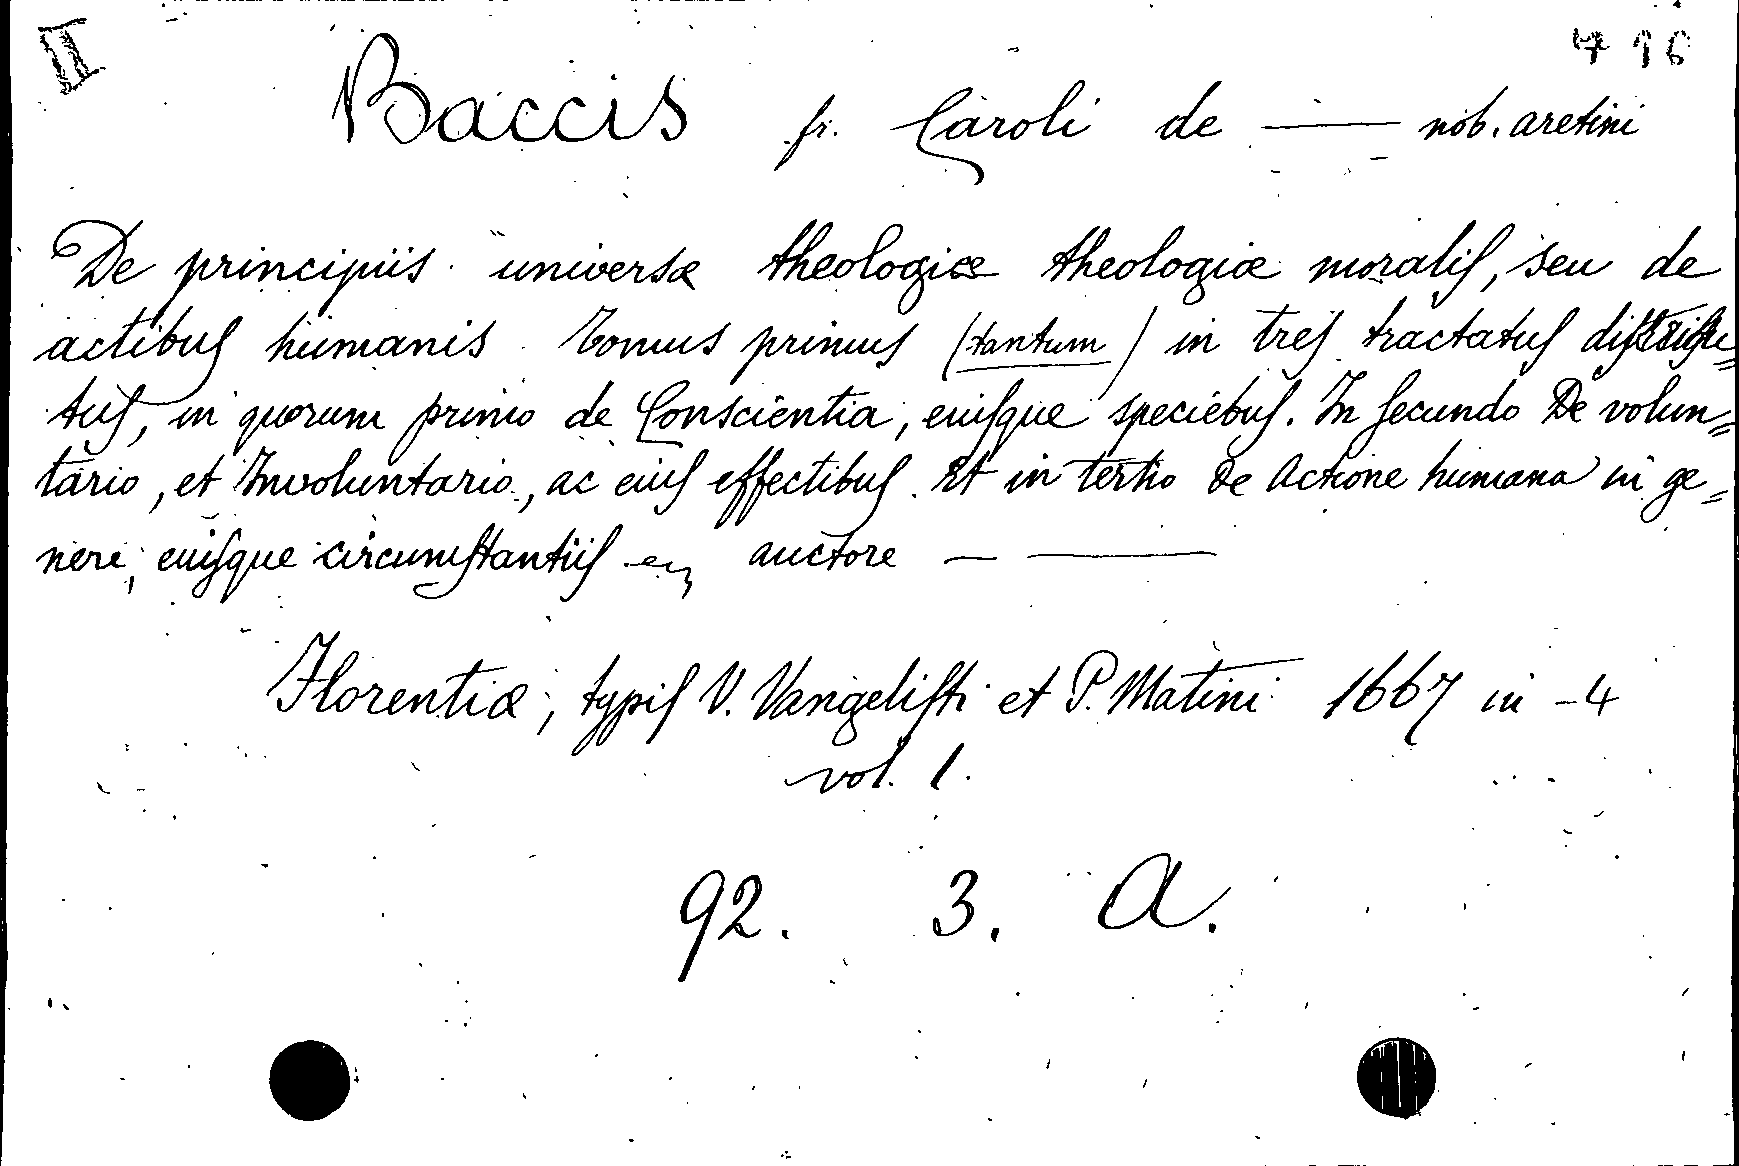 II 716
Baccis fr. Caroli de — nob. aretini
De principiis universæ theologiæ theologiæ moralis, seu de
actibus humanis. Tomus primus (tantum) in tres tractatus distribu=
tus, in quorum primo de Conscientia, eiusque speciebus. In secundo De volun=
tario, et Involuntario, ac eius effectibus. Et in tertio De Actione humana in ge=
nere, eiusque circumstantiis auctore — —
Florentiæ, typis V. Vangelisti et P. Matini 1667 in-4
vol. 1.
92. 3. A.